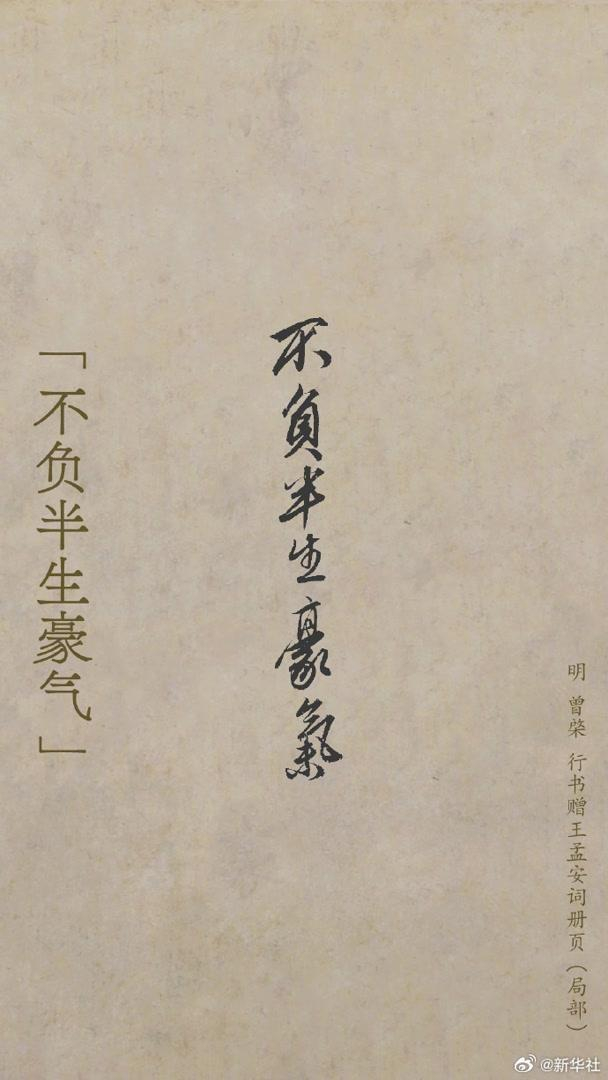 明 曾棨 行书赠王孟安词册页（局部）
不負半生豪氣
「不负半生豪气」
@新华社